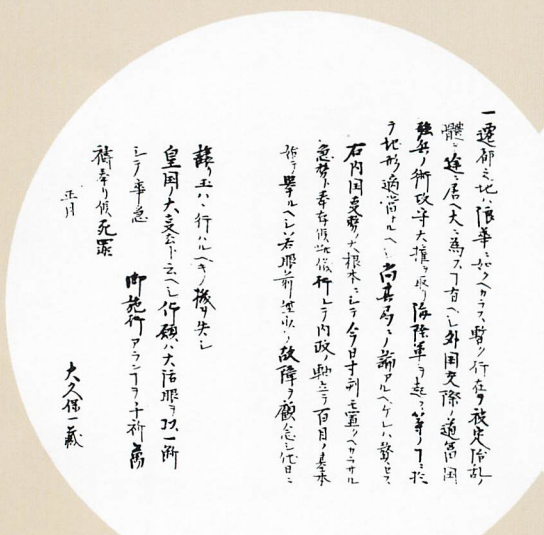 一遷都之地ハ浪華ニ如クヘカラス暫ク行在ヲ被定治乱ノ
體ヲ一途ニ居ヘ大ニ為ス丁有ヘシ外国交際ノ道富国
強兵ノ術攻守大権ヲ取リ海陸軍ヲ起ス等ノ丁ニ於
テ地形適当ナルヘシ尚其局々ノ論アルヘケレハ贅セス
右内国事務ノ大根本ニシテ今日寸刻モ置クヘカラサル
急務ト奉存候此儀行レテ内政ノ軸立チ百目ノ基本
始テ挙ルヘシ若眼前些少ノ故障ヲ顧念シ他日ニ
譲リ玉ハヽ行ハルヘキノ機ヲ失シ
皇国ノ大事去ト云ヘシ仰願ハ大活眼ヲ以一断
シテ卒急 御施行アランヿヲ千祈万
祷奉リ候死罪
正月
大久保一蔵